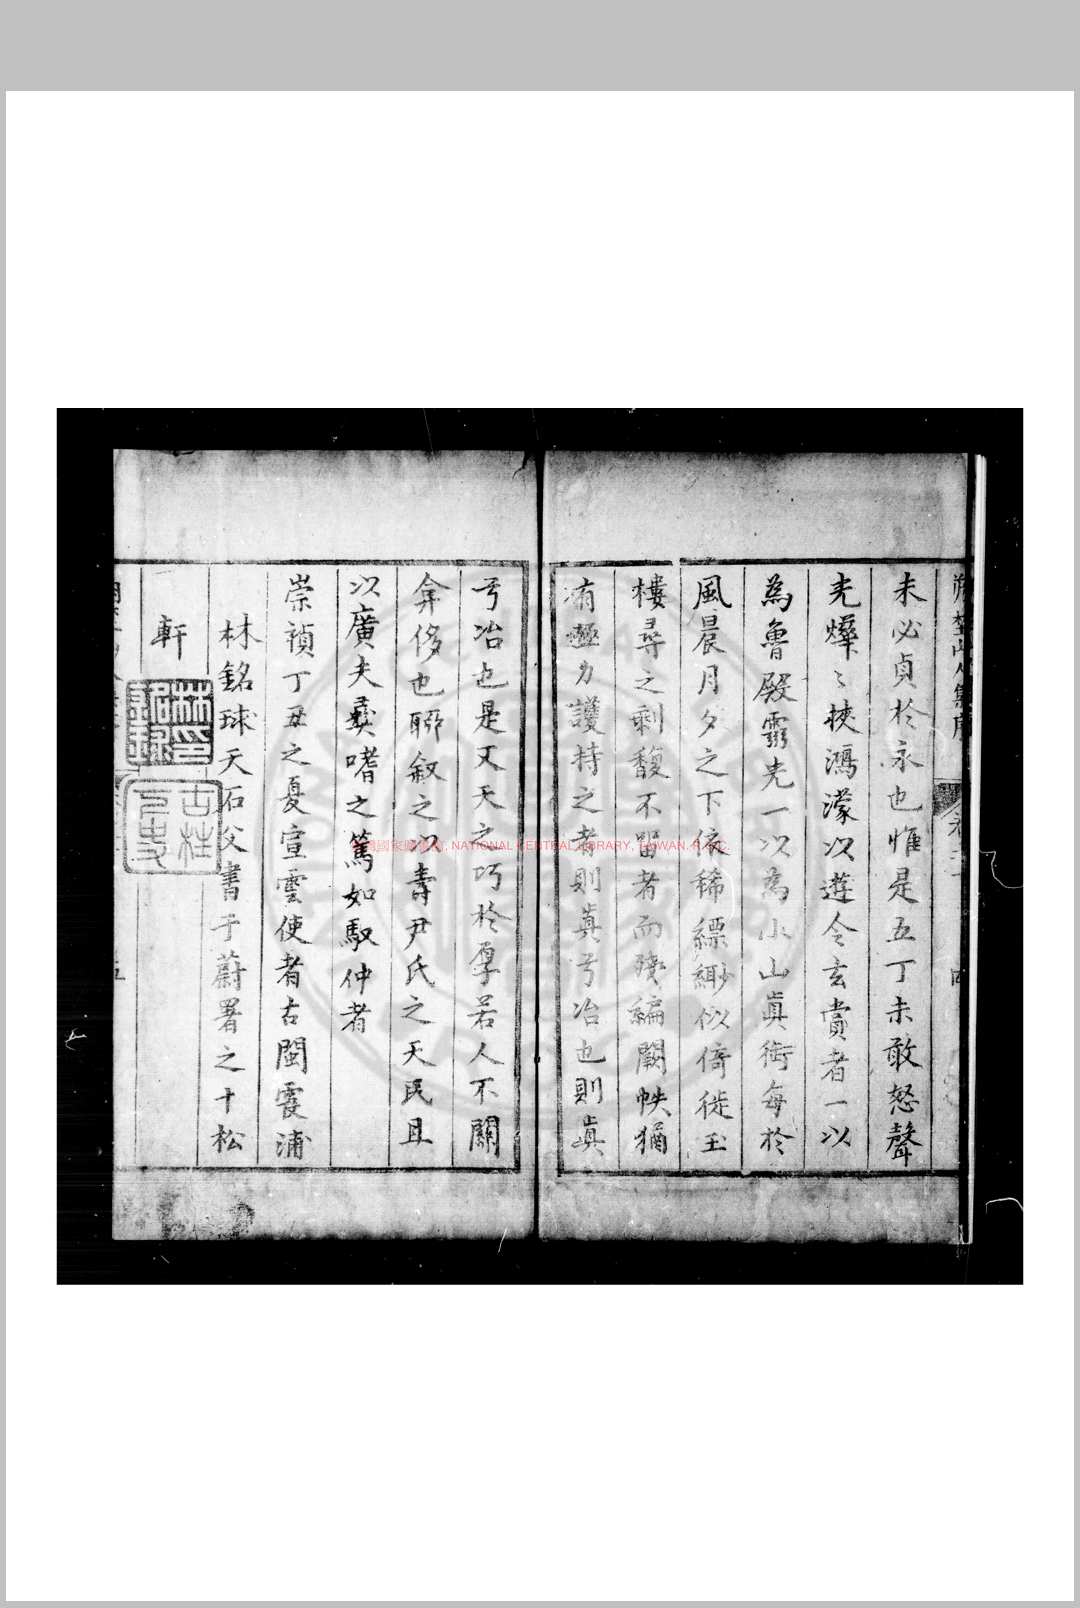 未必貞於永也惟是五丁未敢怒聲
光爗〻挾鴻濛以遊令玄賞者一以
為魯殿靈光一以為小山眞銜每於
風晨月夕之下依稀縹緲似倚徙玉
樓尋之剩馥不留者而殘編闕帙猶
有極力護持之者則眞弓冶也則眞
弓冶也是又天之巧於厚若人不關
弇侈也聊敘之以壽尹氏之天民且
以廣夫彞嗜之篤如馭仲者
崇禎丁丑之夏宣雲使者古閩霞浦
林銘球天石父書于蔚署之十松
軒
林銘球印
古柱下史
臺灣國家圖書館, NATIONAL CENTRAL LIBRARY, TAIWAN, R.O.C.